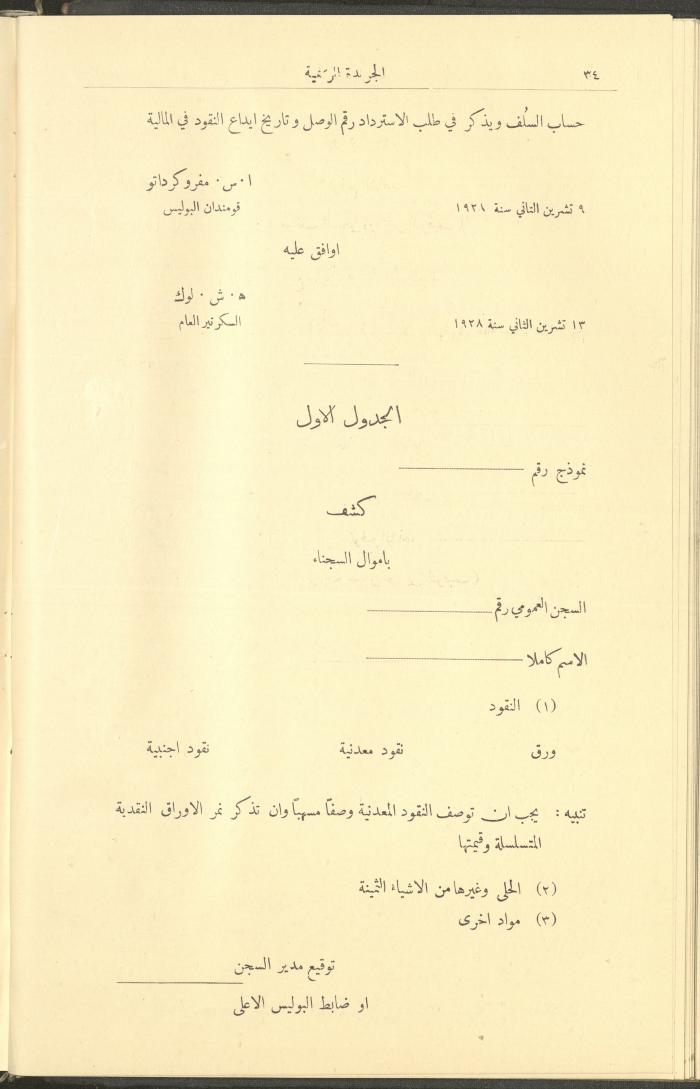 ٣٤
الجريدة الرسمية
حساب السلُف ويذكر في طلب الاسترداد رقم الوصل وتاريخ ايداع النقود في المالية
ا٠س٠ مفروكرداتو
٩ تشرين الثاني سنة ١٩٢١
قومندان البوليس
اوافق عليه
ﻫ٠ ش ٠ لوك
١٣ تشرين الثاني سنة ١٩٢٨
السكرتير العام
الجدول الاول
نموذج رقم
كشف
باموال السجناء
السجن العمومي رقم
الاسم كاملا
(١) النقود
ورق نقود معدنية نقود اجنبية
تنبيه : يجب ان توصف النقود المعدنية وصفاً مسهباً وان تذكر نمر الاوراق النقدية
المتسلسلة وقيمتها
(٢) الحلى وغيرها من الاشياء الثمينة
(٣) مواد اخرى
توقيع مدير السجن
او ضابط البوليس الاعلى